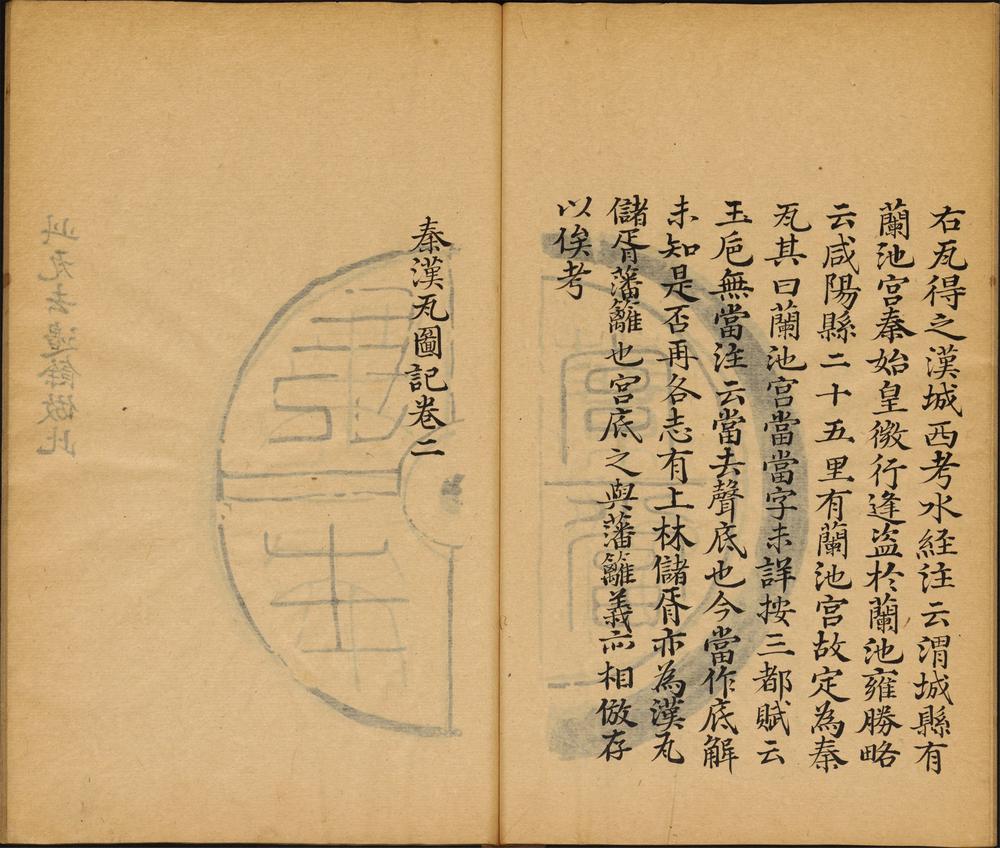 右瓦得之漢城西考水経注云渭城縣有
蘭池宮秦始皇微行逢盗於蘭池雍勝略
云咸陽縣二十五里有蘭池宮故定為秦
瓦其曰蘭池宮當當字未詳按三都賦云
玉巵無當注云當去聲底也今當作底解
未知是否再各志有上林儲胥亦為漢瓦
儲胥藩籬也宮底之與藩籬義亦相倣存
以俟考
秦漢瓦圖記卷二
此瓦去邊餘倣此